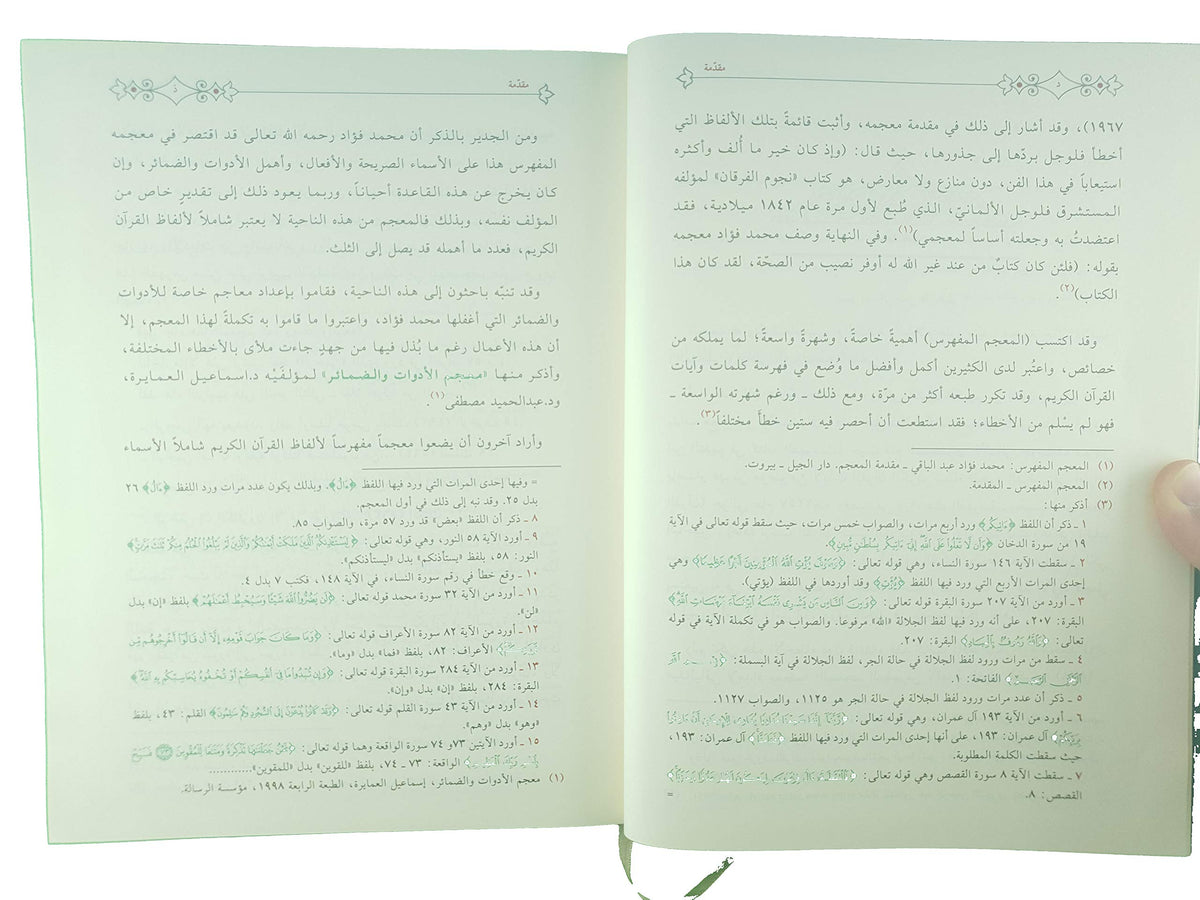 مقدّمة
د
١٩٦٧)، وقد أشار إلى ذلك في مقدمة معجمه، وأثبت قائمةً بتلك الألفاظ التي
أخطأ فلوجل بردّها إلى جذورها، حيث قال: (وإذ كان خير ما أُلف وأكثره
استيعاباً في هذا الفن، دون منازع ولا معارض، هو كتاب «نجوم الفرقان» لمؤلفه
المستشرق فلوجل الألمانيّ، الذي طُبع لأول مرة عام ١٨٤٢ ميلادية، فقد
اعتضدتُ به وجعلته أساساً لمعجمي)(١). وفي النهاية وصف محمد فؤاد معجمه
بقوله: (فلئن كان كتابٌ من عند غير الله له أوفر نصيب من الصحّة، لقد كان هذا
الكتاب)(٢).
وقد اكتسب (المعجم المفهرس) أهميةً خاصةً، وشهرةً واسعةً؛ لما يملكه من
خصائص، واعتُبر لدى الكثيرين أكمل وأفضل ما وُضع في فهرسة كلمات وآيات
القرآن الكريم، وقد تكرر طبعه أكثر من مرّة، ومع ذلك ـ ورغم شهرته الواسعة ـ
فهو لم يسْلم من الأخطاء؛ فقد استطعت أن أحصر فيه ستين خطأً مختلفاً(٣).
(١) المعجم المفهرس: محمد فؤاد عبد الباقي ـ مقدمة المعجم. دار الجيل ـ بيروت.
(٢) المعجم المفهرس ـ المقدمة.
(٣) أذكر منها:
١ ـ ذكر أن اللفظ ﴿ءَاتِيكُم﴾ ورد أربع مرات، والصواب خمس مرات، حيث سقط قوله تعالى في الآية
١٩ من سورة الدخان ﴿وَأَن لَّا تَعْلُوا۟ عَلَى ٱللَّهِ إِنِّىٓ ءَاتِيكُم بِسُلْطَـٰنٍ مُّبِينٍ﴾.
٢ ـ سقطت الآية ١٤٦ سورة النساء، وهي قوله تعالى: ﴿وَسَوْفَ يُؤْتِ ٱللَّهُ ٱلْمُؤْمِنِينَ أَجْرًا عَظِيمًا﴾ وهي
إحدى المرات الأربع التي ورد فيها اللفظ ﴿يُؤْتِ﴾ وقد أوردها في اللفظ (يؤتي).
٣ ـ أورد من الآية ٢٠٧ سورة البقرة قوله تعالى: ﴿وَمِنَ ٱلنَّاسِ مَن يَشْرِى نَفْسَهُ ٱبْتِغَآءَ مَرْضَاتِ ٱللَّهِ﴾
البقرة: ٢٠٧، على أنه ورد فيها لفظ الجلالة «الله» مرفوعاً. والصواب هو في تكملة الآية في قوله
تعالى: ﴿وَٱللَّهُ رَءُوفٌۢ بِٱلْعِبَادِ﴾ البقرة: ٢٠٧.
٤ ـ سقط من مرات ورود لفظ الجلالة في حالة الجر، لفظ الجلالة في آية البسملة:
الفاتحة: ١.
٥ ـ ذكر أن عدد مرات ورود لفظ الجلالة في حالة الجر هو ١١٢٥، والصواب ١١٢٧.
٦ ـ أورد من الآية ١٩٣ آل عمران، وهي قوله تعالى: ﴿رَّبَّنَآ إِنَّنَا سَمِعْنَا مُنَادِيًا يُنَادِى لِلْإِيمَـٰنِ أَنْ ءَامِنُوا۟
بِرَبِّكُمْ﴾ آل عمران: ١٩٣، على أنها إحدى المرات التي ورد فيها اللفظ آل عمران: ١٩٣،
حيث سقطت الكلمة المطلوبة.
٧ ـ سقطت الآية ٨ سورة القصص وهي قوله تعالى: ﴿فَٱلْتَقَطَهُۥٓ ءَالُ فِرْعَوْنَ لِيَكُونَ لَهُمْ عَدُوًّا وَحَزَنًا﴾
القصص: ٨.
=
مقدّمة
ذ
ومن الجدير بالذكر أن محمد فؤاد رحمه الله تعالى قد اقتصر في معجمه
المفهرس هذا على الأسماء الصريحة والأفعال، وأهمل الأدوات والضمائر، وإن
كان يخرج عن هذه القاعدة أحياناً، وربما يعود ذلك إلى تقديرٍ خاص من
المؤلف نفسه، وبذلك فالمعجم من هذه الناحية لا يعتبر شاملاً لألفاظ القرآن
الكريم، فعدد ما أهمله قد يصل إلى الثلث.
وقد تنبّه باحثون إلى هذه الناحية، فقاموا بإعداد معاجم خاصة للأدوات
والضمائر التي أغفلها محمد فؤاد، واعتبروا ما قاموا به تكملةً لهذا المعجم، إلا
أن هذه الأعمال رغم ما بُذل فيها من جهدٍ جاءت ملأى بالأخطاء المختلفة،
وأذكر منها «معجم الأدوات والضمائر» لمؤلفَيْه د.اسماعيل العمايرة،
ود.عبدالحميد مصطفى(١).
وأراد آخرون أن يضعوا معجماً مفهرساً لألفاظ القرآن الكريم شاملاً الأسماء
= وفيها إحدى المرات التي ورد فيها اللفظ ﴿ءَالُ﴾. وبذلك يكون عدد مرات ورد اللفظ ﴿ءَالُ﴾ ٢٦
بدل ٢٥. وقد نبه إلى ذلك في أول المعجم.
٨ ـ ذكر أن اللفظ «بعض» قد ورد ٥٧ مرة، والصواب ٨٥.
٩ ـ أورد الآية ٥٨ النور، وهي قوله تعالى: ﴿لِيَسْتَـْٔذِنكُمُ ٱلَّذِينَ مَلَكَتْ أَيْمَـٰنُكُمْ وَٱلَّذِينَ لَمْ يَبْلُغُوا۟ ٱلْحُلُمَ مِنكُمْ ثَلَـٰثَ مَرَّٰتٍ﴾
النور: ٥٨، بلفظ «يستأذنكم» بدل «ليستأذنكم».
١٠ ـ وقع خطأ في رقم سورة النساء، في الآية ١٤٨، فكتب ٧ بدل ٤.
١١ ـ أورد من الآية ٣٢ سورة محمد قوله تعالى: ﴿لَن يَضُرُّوا۟ ٱللَّهَ شَيْـًٔا وَسَيُحْبِطُ أَعْمَـٰلَهُمْ﴾ بلفظ «إن» بدل
«لن».
١٢ ـ أورد من الآية ٨٢ سورة الأعراف قوله تعالى: ﴿وَمَا كَانَ جَوَابَ قَوْمِهِۦٓ إِلَّآ أَن قَالُوٓا۟ أَخْرِجُوهُم مِّن
قَرْيَتِكُمْ﴾ الأعراف: ٨٢، بلفظ «فما» بدل «وما».
١٣ ـ أورد من الآية ٢٨٤ سورة البقرة قوله تعالى: ﴿وَإِن تُبْدُوا۟ مَا فِىٓ أَنفُسِكُمْ أَوْ تُخْفُوهُ يُحَاسِبْكُم بِهِ ٱللَّهُ﴾
البقرة: ٢٨٤، بلفظ «إن» بدل «وإن».
١٤ ـ أورد من الآية ٤٣ سورة القلم قوله تعالى: ﴿وَقَدْ كَانُوا۟ يُدْعَوْنَ إِلَى ٱلسُّجُودِ وَهُمْ سَـٰلِمُونَ﴾ القلم: ٤٣، بلفظ
«وهو» بدل «وهم».
١٥ ـ أورد الآيتين ٧٣و ٧٤ سورة الواقعة وهما قوله تعالى: ﴿نَحْنُ جَعَلْنَـٰهَا تَذْكِرَةً وَمَتَـٰعًا لِّلْمُقْوِينَ ٧٣ فَسَبِّحْ
بِٱسْمِ رَبِّكَ ٱلْعَظِيمِ﴾ الواقعة: ٧٣ ـ ٧٤، بلفظ «للقوين» بدل «للمقوين»............
(١) معجم الأدوات والضمائر، إسماعيل العمايرة، الطبعة الرابعة ١٩٩٨، مؤسسة الرسالة.